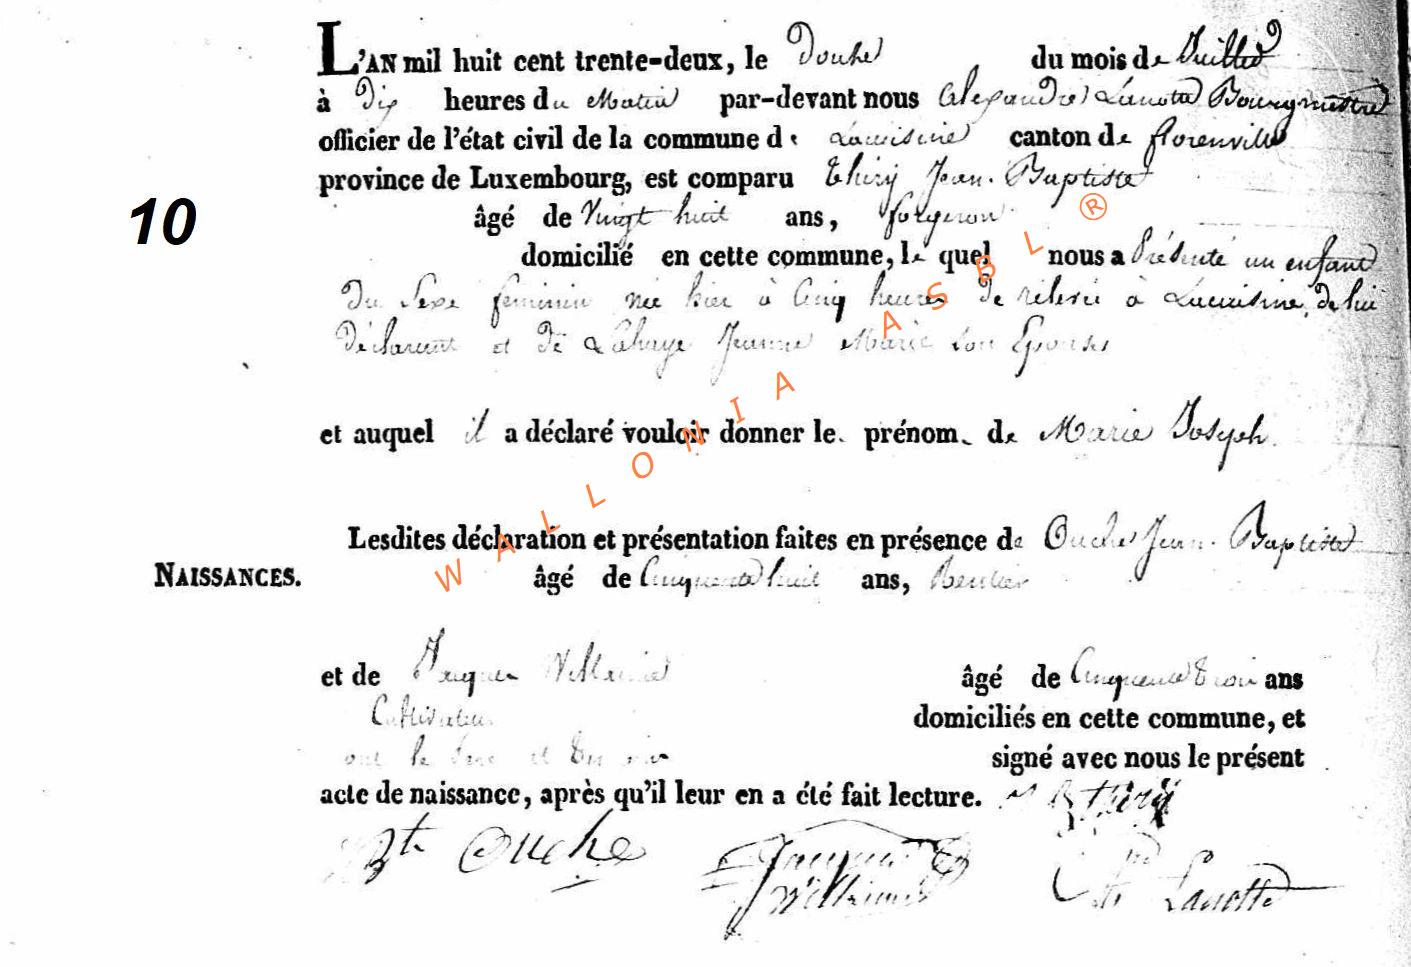 L'AN mil huit cent trente-deux, le Douhe du mois de Juillet
à Dix heures du Matin par-devant nous Alexandre Lanotte Bourgmestre
officier de l'état civil de la commune de Lacuisine canton de florenville
province de Luxembourg, est comparu Thiry Jean-Baptiste
10
âgé de Vingt huit ans, forgeron
domicilié en cette commune, le quel nous a Présenté un enfant
Du Sexe feminin née hier à Cinq heures De relevée à Lacuisine, de lui
Déclarant et De Lahaye Jeanne Marie son Epouse
et auquel il a déclaré vouloir donner le prénom de Marie Joseph.
Lesdites déclaration et présentation faites en présence de Ouche Jean-Baptiste
NAISSANCES.
âgé de Cinquante huit ans, Rentier
et de Jacques âgé de Cinquante trois ans
Cultivateur domiciliés en cette commune, et
ont le Père et signé avec nous le présent
acte de naissance, après qu'il leur en a été fait lecture. Thiry
Bte Ouche Jacques Lanotte
WALLONIA ASBL ®